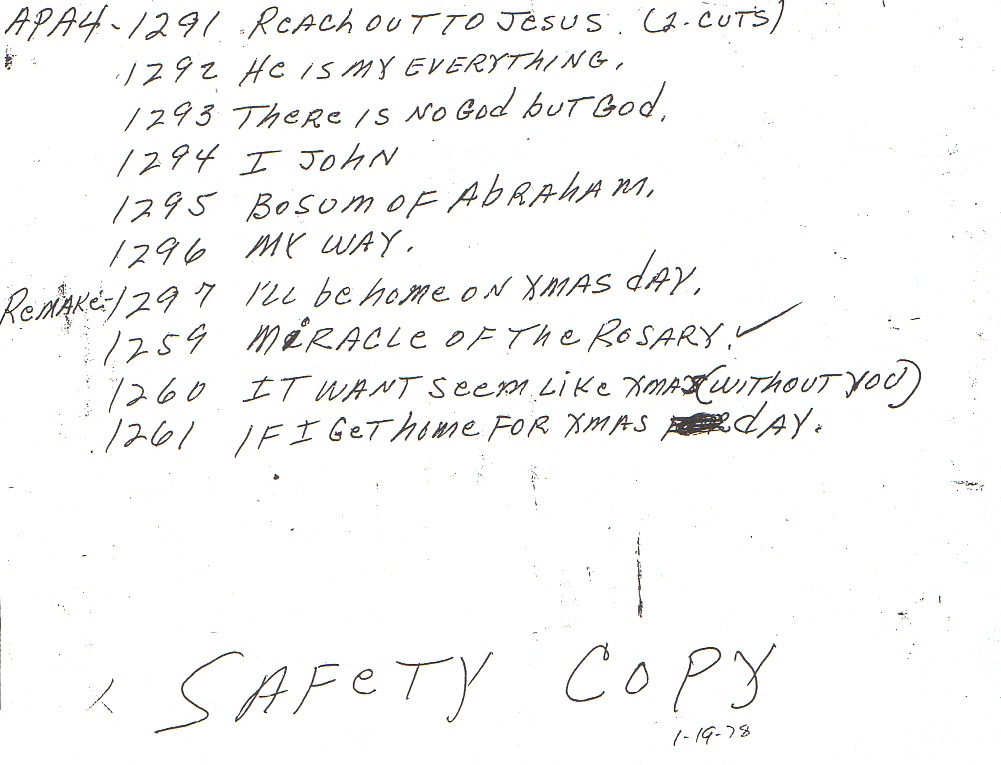 APA4-1291 Reach out to Jesus. (2-cuts)
1292 He is my everything.
1293 There is no God but God.
1294 I John
1295 Bosum of Abraham.
1296 My way.
Remake-1297 I'll be home on Xmas day.
1259 Miracle of the Rosary. ✓
1260 It want seem like Xmas (without you)
1261 If I get home for Xmas day.
Safety Copy
1-19-78